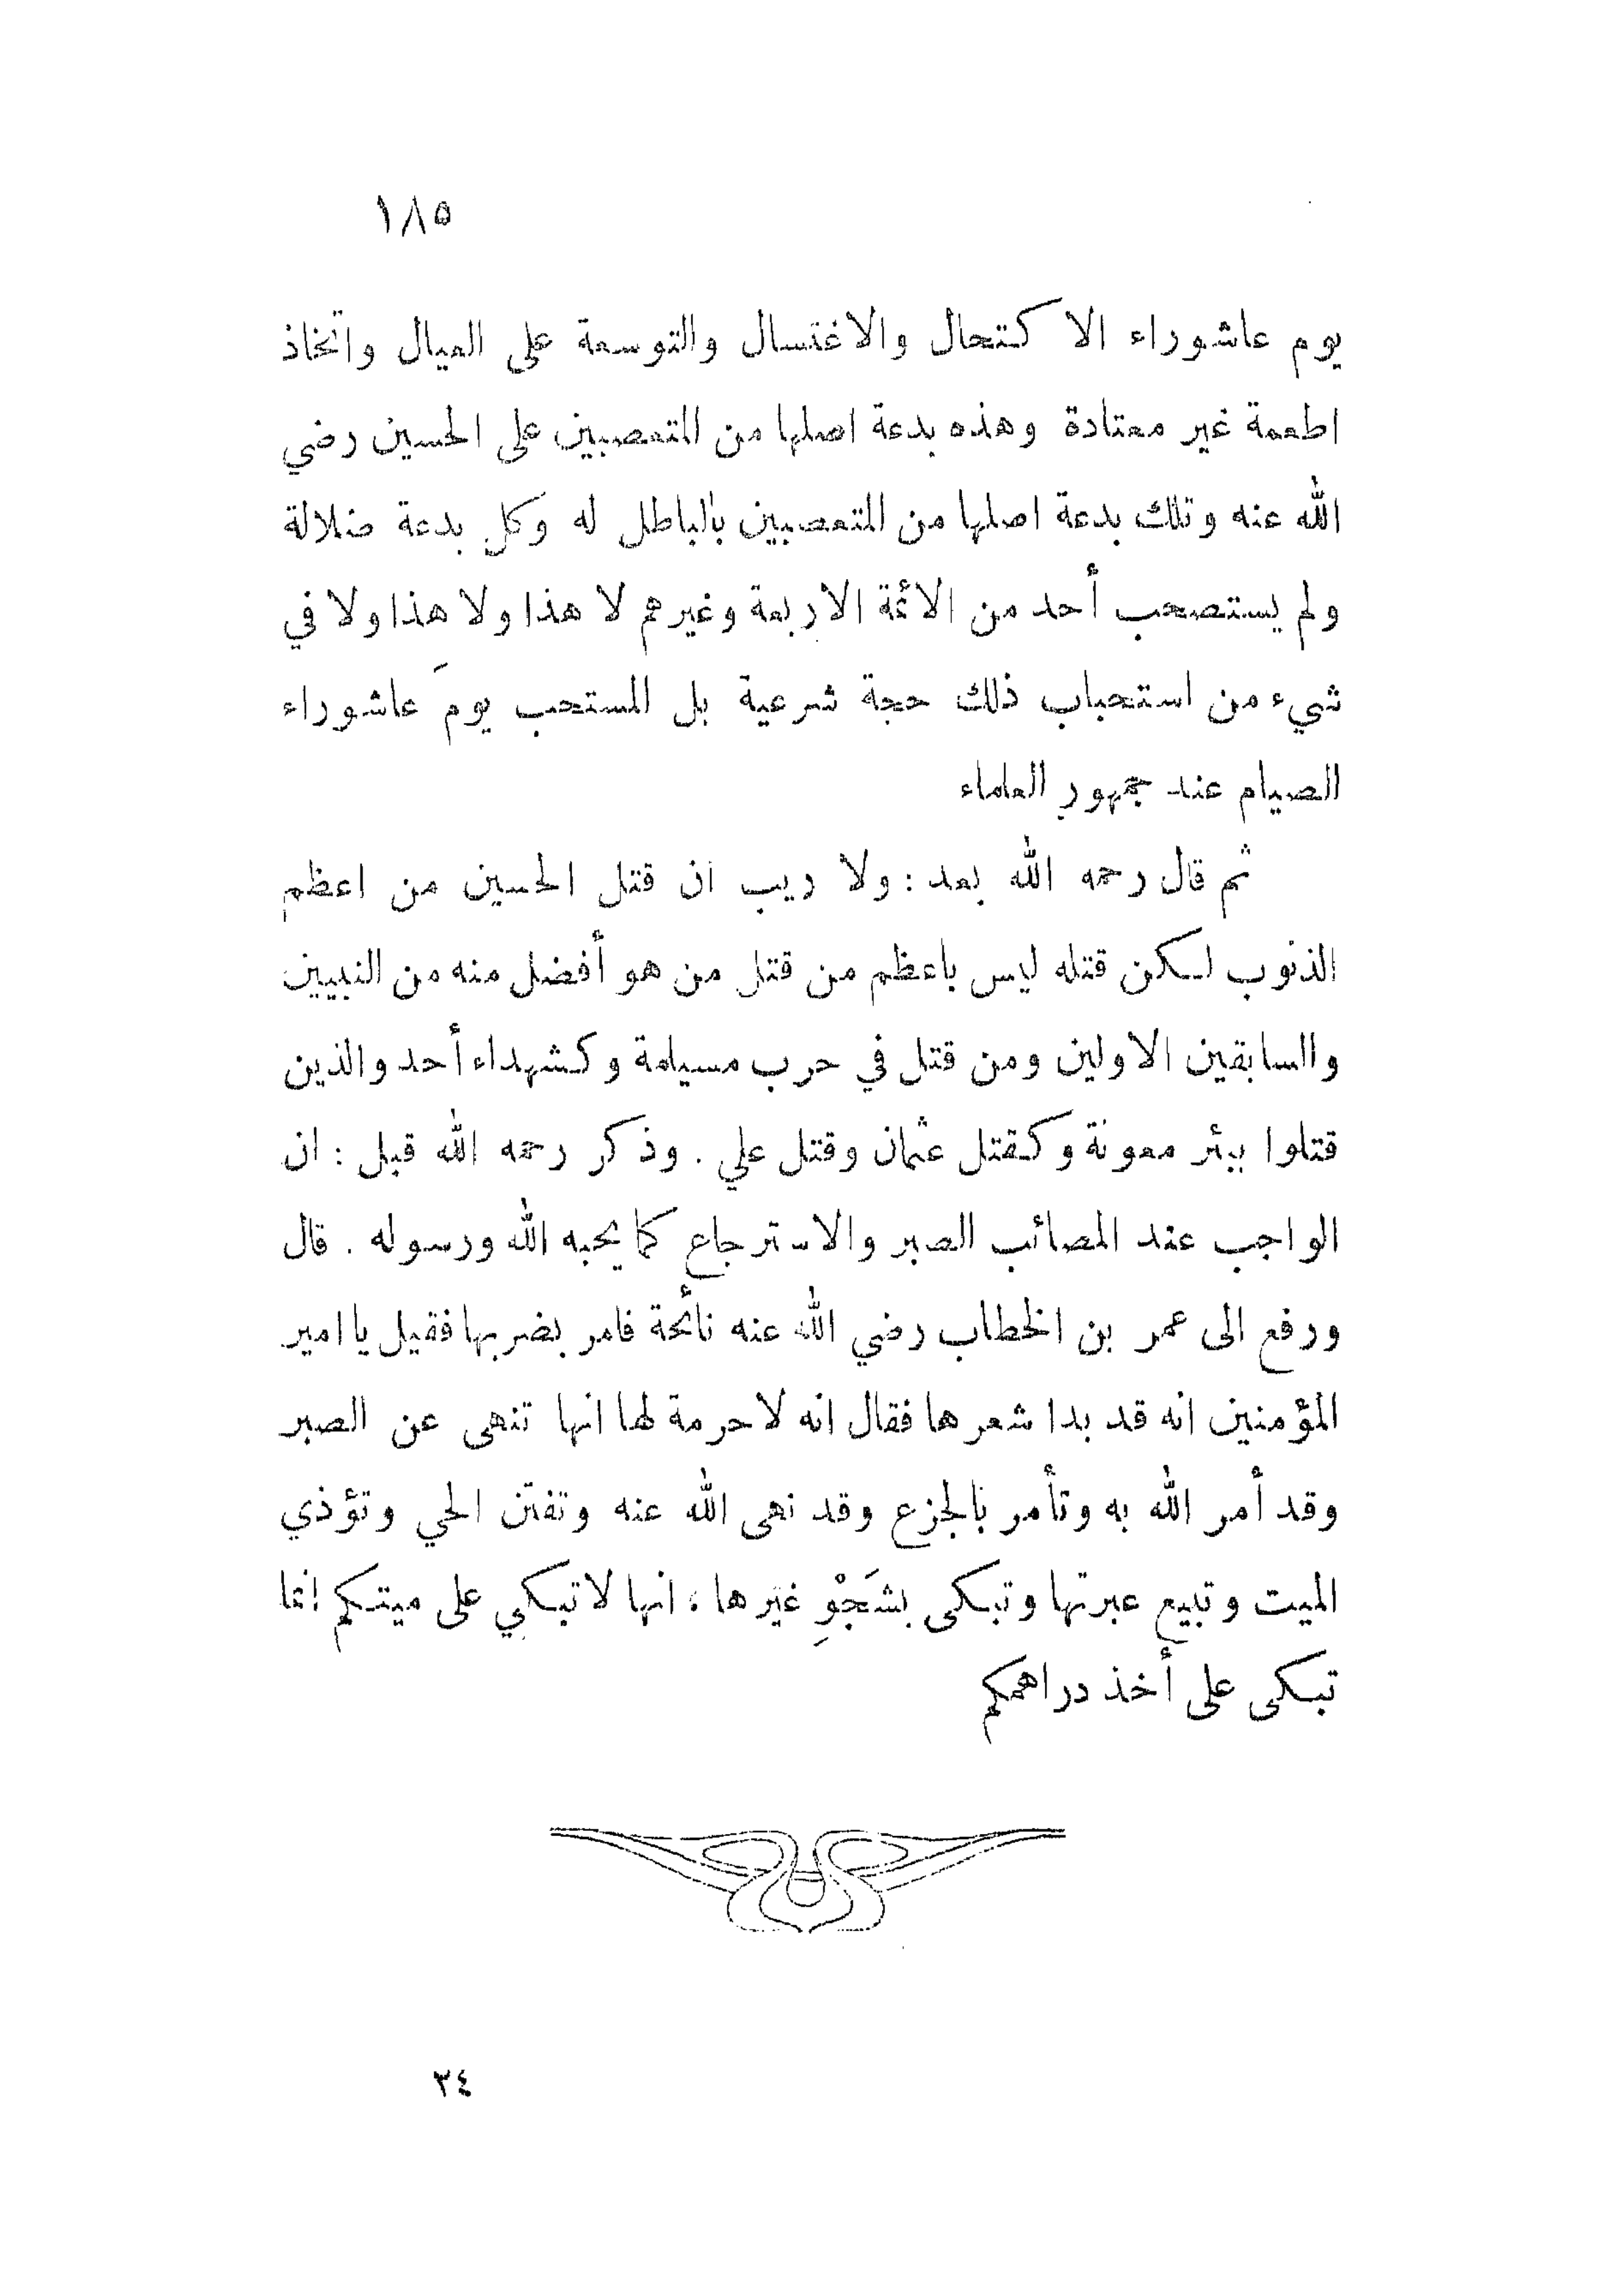 ١٨٥
يوم عاشوراء الاكتحال والاغتسال والتوسعة على العيال واتخاذ
اطعمة غير معتادة وهذه بدعة اصلها من المتعصبين على الحسين رضي
الله عنه وتلك بدعة اصلها من المتعصبين بالباطل له وكل بدعة ضلالة
ولم يستصحب أحد من الائمة الاربعة وغيرهم لا هذا ولا هذا ولا في
شيء من استحباب ذلك حجة شرعية بل المستحب يومَ عاشوراء
الصيام عند جمهور العلماء
ثم قال رحمه الله بعد : ولا ريب ان قتل الحسين من اعظم
الذنوب لكن قتله ليس باعظم من قتل من هو أفضل منه من النبيين
والسابقين الاولين ومن قتل في حرب مسيلمة وكشهداء أحد والذين
قتلوا ببئر معونة وكقتل عثمان وقتل علي . وذكر رحمه الله قبل : ان
الواجب عند المصائب الصبر والاسترجاع كما يحبه الله ورسوله . قال
ورفع الى عمر بن الخطاب رضي الله عنه نائحة فامر بضربها فقيل يا امير
المؤمنين انه قد بدا شعرها فقال انه لا حرمة لها انها تنهى عن الصبر
وقد أمر الله به وتأمر بالجزع وقد نهى الله عنه وتفتن الحي وتؤذي
الميت وتبيع عبرتها وتبكى بشَجْوِ غيرها ، انها لا تبكي على ميتكم إنما
تبكى على أخذ دراهمكم
٢٤